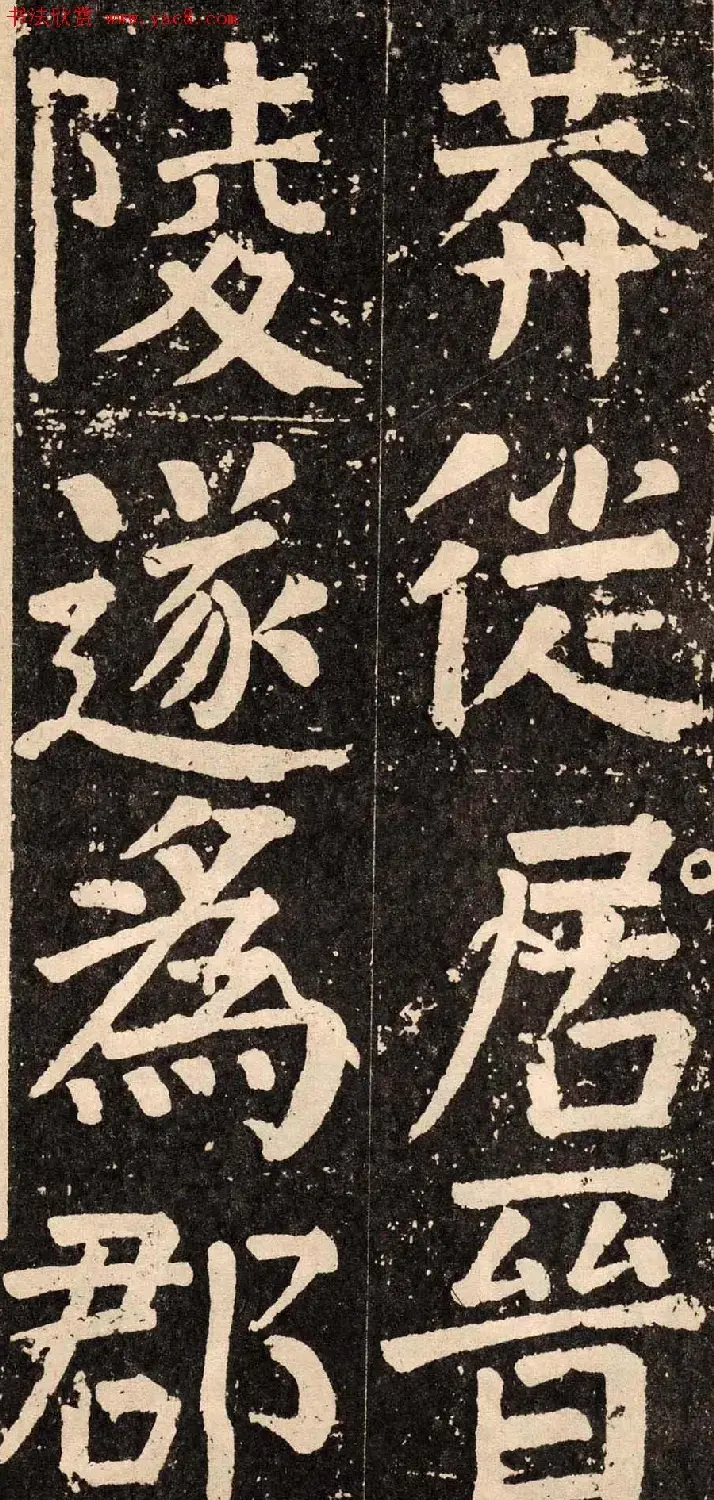 书法欣赏 www.yac8.com
莽従居晉
陵遂為郡